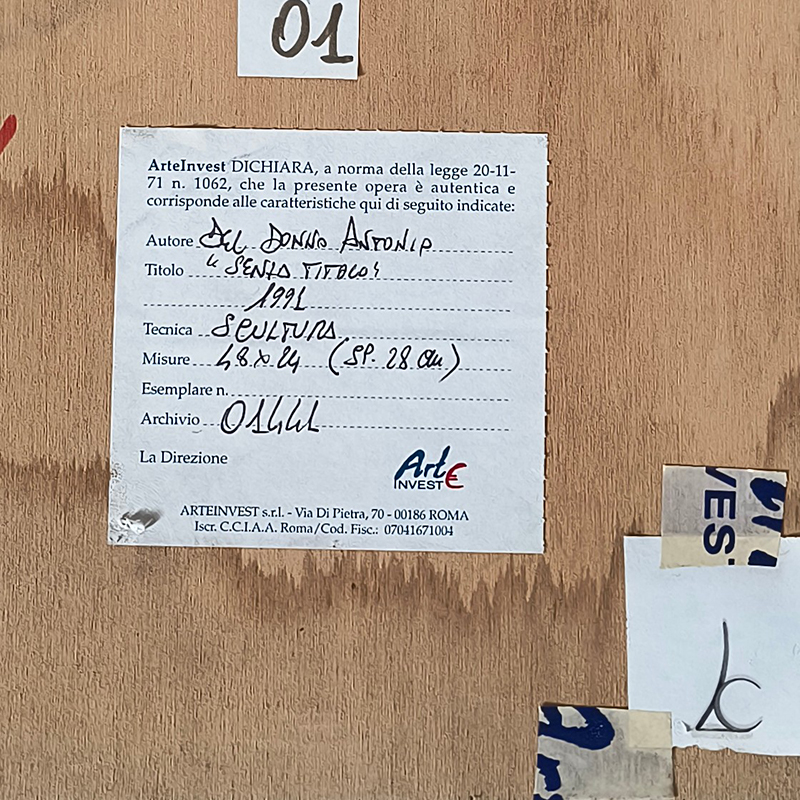 01
ArteInvest DICHIARA, a norma della legge 20-11-
71 n. 1062, che la presente opera è autentica e
corrisponde alle caratteristiche qui di seguito indicate:
Autore DEL DONNO ANTONIO
Titolo "SENZA TITOLO"
1991
Tecnica SCULTURA
Misure 48x24 (SP. 28 cm)
Esemplare n.
Archivio 01441
La Direzione
Art€
INVEST
ARTEINVEST s.r.l. - Via Di Pietra, 70 - 00186 ROMA
Iscr. C.C.I.A.A. Roma/Cod. Fisc.: 07041671004
VES